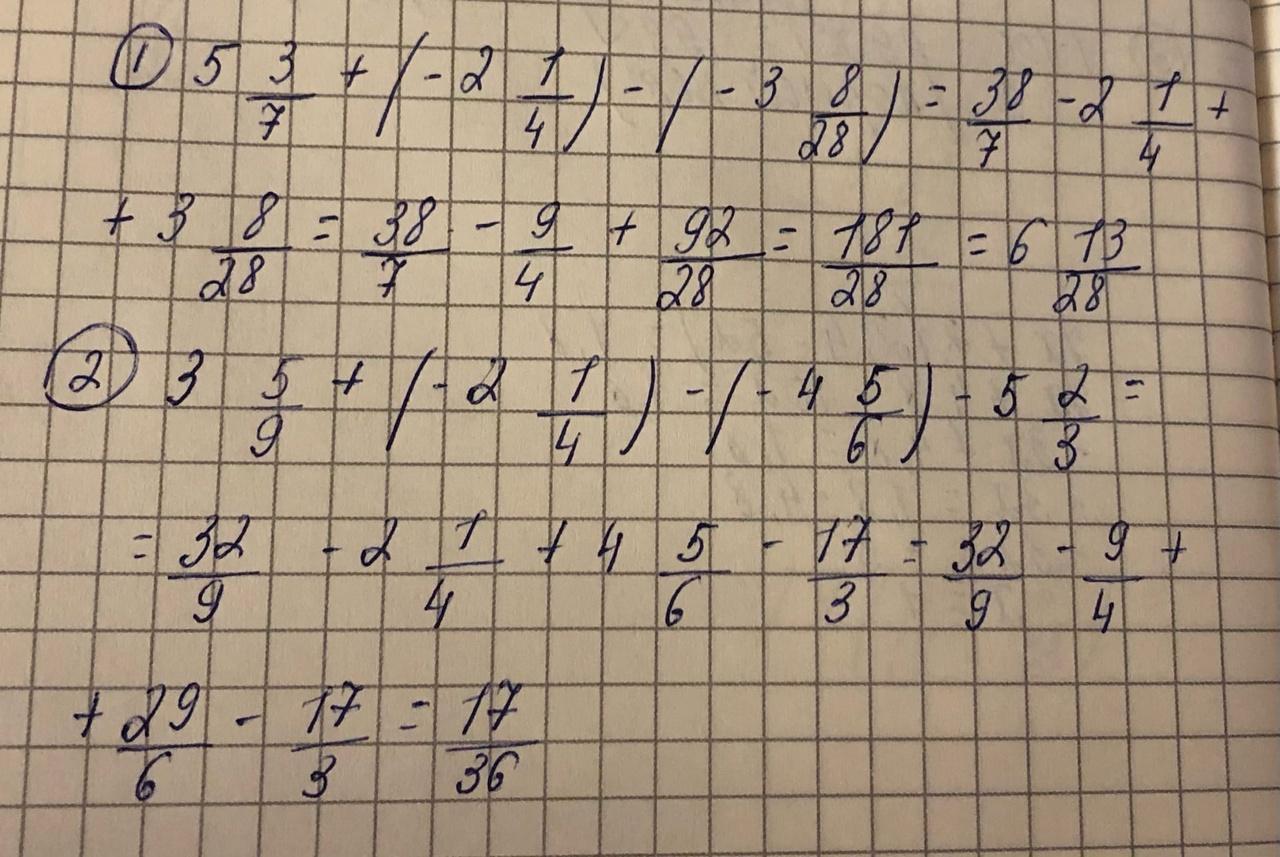 ① 5 3/7 + (-2 1/4) - (-3 8/28) = 38/7 - 2 1/4 +
+ 3 8/28 = 38/7 - 9/4 + 92/28 = 181/28 = 6 13/28
② 3 5/9 + (-2 1/4) - (-4 5/6) - 5 2/3 =
= 32/9 - 2 1/4 + 4 5/6 - 17/3 = 32/9 - 9/4 +
+ 29/6 - 17/3 = 17/36